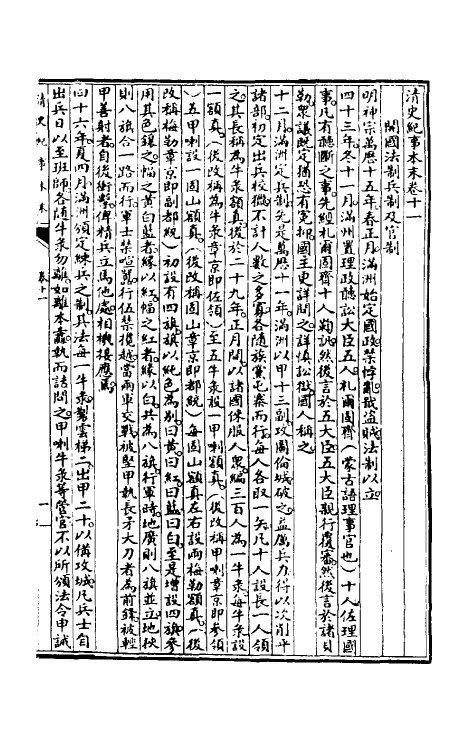 清史紀事本末卷十一
開國法制兵制及官制
明神宗萬曆十五年春正月滿洲始定國政禁悖亂戢盜賊法制以立
四十三年冬十一月滿洲置理政聽訟大臣五人札爾固齊（蒙古語理事官也）十人佐理國
事凡有聽斷之事先經札爾固齊十人鞫訊然後言於五大臣五大臣覆審然後言於諸貝
勒衆議既定猶恐有冤抑國主更詳問之詳慎訟獄國人稱之
十二月滿洲定兵制先是萬曆十一年滿洲以甲十三副攻圖倫城破之益厲兵力得以次削平
諸部初定出兵校獵不計人數之多寡各隨族黨屯寨而行每人各取一矢凡十人設長一人領
之其長稱為牛彔額真後於二十九年正月間以諸國徠服人衆編三百人為一牛彔每牛彔設
一額真（後改稱為牛彔章京即佐領）至五牛彔設一甲喇額真（後改稱甲喇章京即參領
）五甲喇設一固山額真（後改稱固山章京即都統）每固山額真左右設兩梅勒額真（後
改稱梅勒章京即副都統）初設有四旗旗以純色為別曰黃曰紅曰藍曰白至是增設四旗參
用其色鑲之幅之黃白藍者緣以紅幅之紅者緣以白共為八旗行軍時地廣則八旗並立地狹
則八旗合一路而行軍士禁喧囂行伍禁攙越當兩軍交戰被堅甲執長矛大刀者為前鋒被輕
甲善射者自後衝擊俾精兵立馬他處相機接應焉
四十六年夏四月滿洲頒定練兵之制其法每一牛彔製雲梯二出甲二十以備攻城凡兵士自
出兵日以至班師各隨牛彔勿離如離本纛執而詰問之甲喇牛彔等管官不以所頒法令申誡
清史紀事本末
卷十一
一